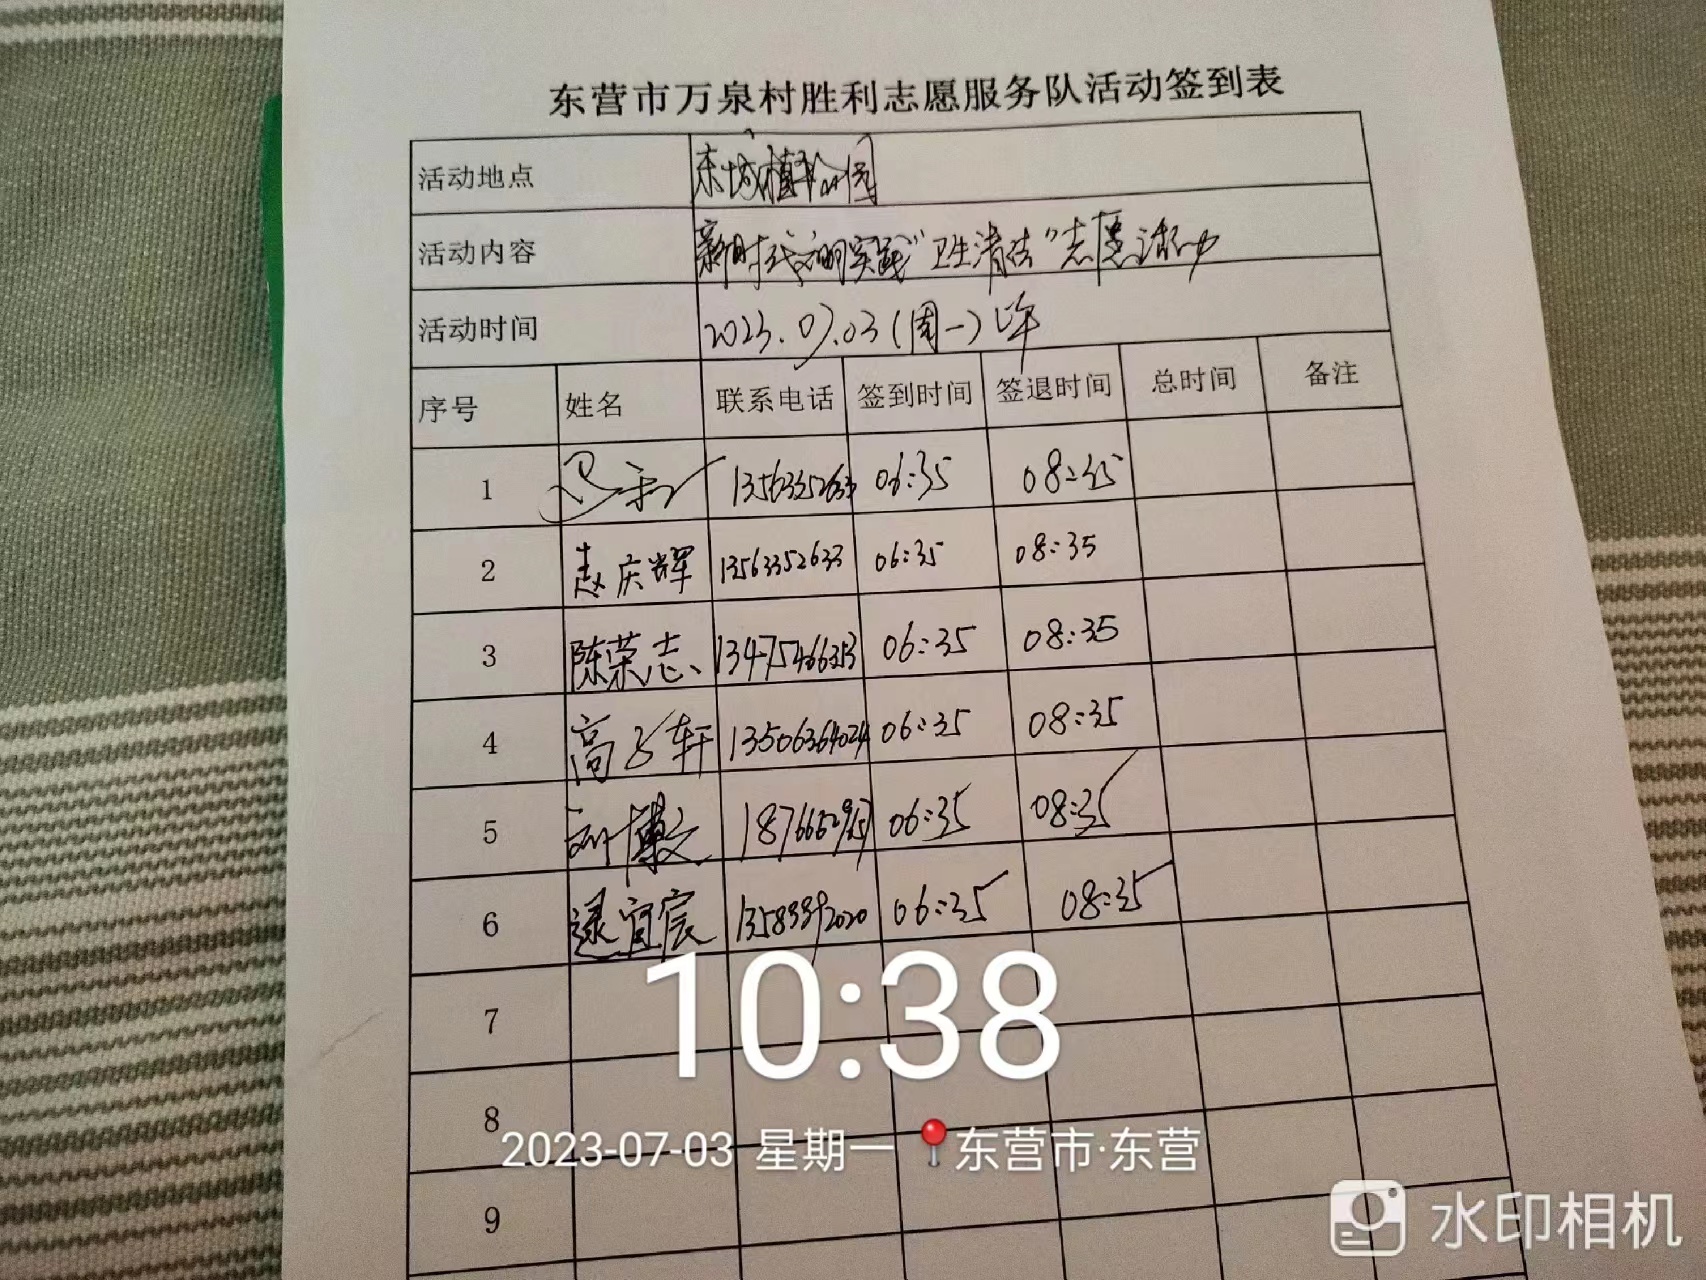 东营市万泉村胜利志愿服务队活动签到表
活动地点 东城植物公园
活动内容 新时代文明实践"卫生清洁"志愿活动
活动时间 2023.07.03(周一)上午
序号 姓名 联系电话 签到时间 签退时间 总时间 备注
1 13563352633 06:35 08:35
2 赵庆辉 13563352633 06:35 08:35
3 陈荣志 13475466313 06:35 08:35
4 高子轩 13506364024 06:35 08:35
5 刘博文 06:35 08:35
6 逯宜宸 06:35 08:35
7
10:38
8
2023-07-03 星期一 东营市·东营
9
水印相机